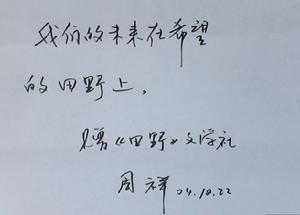 我们的未来在希望
的田野上。
兄勇《田野》文学社
周祥 04.10.22